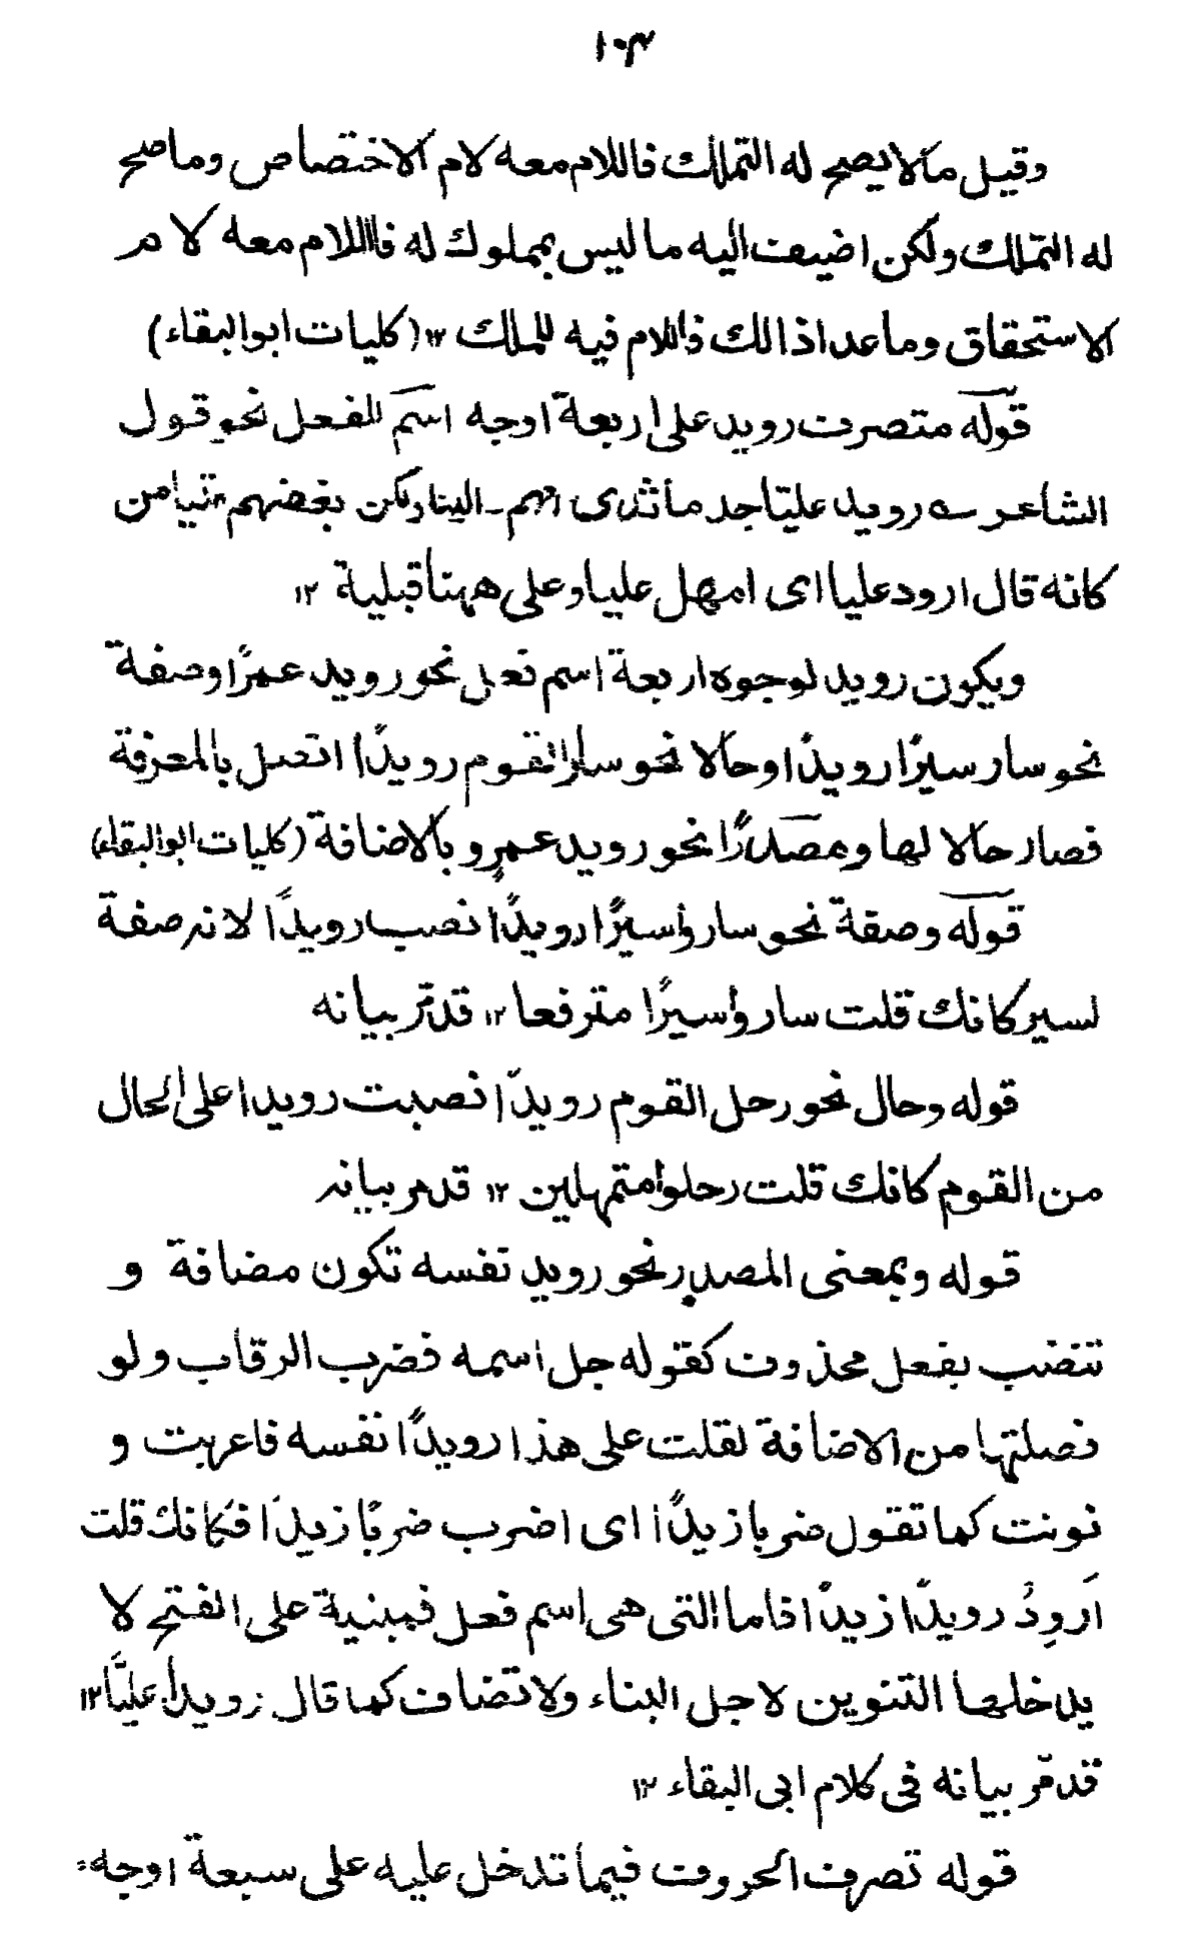 ۱۰۳
وقيل مالا يصح له التملك فاللام معه لام الاختصاص وما صح
له التملك ولكن اضيف اليه ما ليس بمملوك له فاللام معه لام
الاستحقاق وما عدا ذالك فاللام فيه للملك ۱۲ (كليات ابوالبقاء)
قوله متصرف رويد على اربعة اوجه اسم للفعل نحو قول
الشاعر رويد عليا جد ما ثدى امهم ـ الينا ولكن بغضهم
كانه قال ارود عليا اى امهل عليا وعلى ههنا قبلية ۱۲
ويكون رويد لوجوه اربعة اسم فعل نحو رويد عمرًا وصفة
نحو سار سيرًا رويدًا وحالا نحو سار القوم رويدًا اتصل بالمعرفة
فصار حالا لها ومصدرًا نحو رويد عمرٍو بالاضافة (كليات ابوالبقاء)
قوله وصقة نحو ساروا سيرًا رويدًا نصب رويدًا لانه صفة
لسير كانك قلت ساروا سيرًا مترفعا ۱۲ قد مر بيانه
قوله وحال نحو رحل القوم رويدًا نصبت رويدا على الحال
من القوم كانك قلت رحلوا متمهلين ۱۲ قد مر بيانه
قوله وبمعنى المصدر نحو رويد نفسه تكون مضافة و
تنصب بفعل محذوف كقوله جل اسمه فضرب الرقاب ولو
فصلتها من الاضافة لقلت على هذا رويدًا نفسه فاعربت و
نونت كما تقول ضربا زيدًا اى اضرب ضربًا زيدًا فكانك قلت
اَرودُ رويدًا زيدًا فاما التى هى اسم فعل فمبنية على الفتح لا
يدخلها التنوين لاجل البناء ولا تضاف كما قال رويدا عليًّا ۱۲
قد مر بيانه فى كلام ابى البقاء ۱۲
قوله تصرف الحروف فيما تدخل عليه على سبعة اوجه